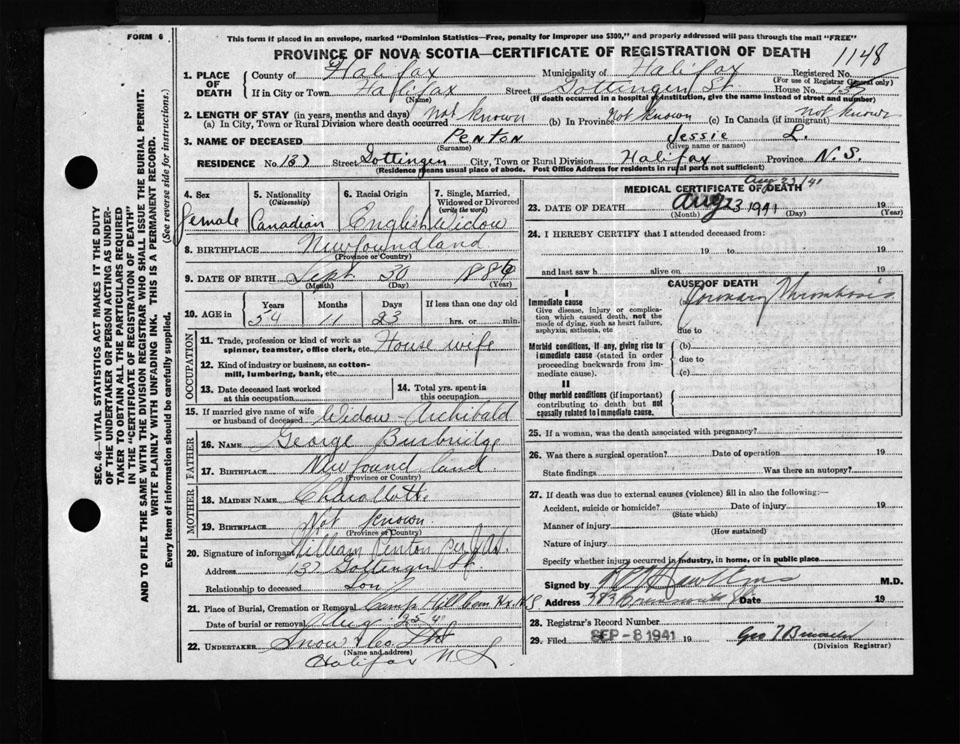 FORM 6
This form if placed in an envelope, marked "Dominion Statistics—Free, penalty for improper use $300," and properly addressed will pass through the mail "FREE"
PROVINCE OF NOVA SCOTIA—CERTIFICATE OF REGISTRATION OF DEATH
1148
1. PLACE OF DEATH
County of Halifax Municipality of Halifax Registered No.
(For use of Registrar General only)
If in City or Town Halifax Street Gottingen St House No. 137
(Name) (If death occurred in a hospital or institution, give the name instead of street and number)
2. LENGTH OF STAY (in years, months and days)
(a) In City, Town or Rural Division where death occurred Not Known (b) In Province Not Known (c) In Canada (if immigrant) not known
3. NAME OF DECEASED Penton Jessie L.
(Surname) (Given name or names)
RESIDENCE No. 137 Street Gottingen City, Town or Rural Division Halifax Province N.S.
(Residence means usual place of abode. Post Office Address for residents in rural parts not sufficient)
SEC. 46—VITAL STATISTICS ACT MAKES IT THE DUTY
OF THE UNDERTAKER OR PERSON ACTING AS UNDER-
TAKER TO OBTAIN ALL THE PARTICULARS REQUIRED
IN THE "CERTIFICATE OF REGISTRATION OF DEATH"
AND TO FILE THE SAME WITH THE DIVISION REGISTRAR WHO SHALL ISSUE THE BURIAL PERMIT.
WRITE PLAINLY WITH UNFADING INK. THIS IS A PERMANENT RECORD.
Every item of information should be carefully supplied. (See reverse side for instructions.)
4. Sex Female
5. Nationality (Citizenship) Canadian
6. Racial Origin English
7. Single, Married, Widowed or Divorced (write the word) Widow
8. BIRTHPLACE Newfoundland
(Province or Country)
9. DATE OF BIRTH Sept 30 1886
(Month) (Day) (Year)
10. AGE in Years 54 Months 11 Days 23 If less than one day old hrs. or min.
OCCUPATION
11. Trade, profession or kind of work as spinner, teamster, office clerk, etc. House wife
12. Kind of industry or business, as cotton-mill, lumbering, bank, etc.
13. Date deceased last worked at this occupation
14. Total yrs. spent in this occupation
15. If married give name of wife or husband of deceased Widow - Archibald
FATHER
16. NAME George Burbridge
17. BIRTHPLACE Newfoundland
(Province or Country)
MOTHER
18. MAIDEN NAME
19. BIRTHPLACE Not Known.
(Province or Country)
20. Signature of informant William Penton
Address 137 Gottingen St.
Relationship to deceased Son
21. Place of Burial, Cremation or Removal Camp Hill
Date of burial or removal Aug 25 41
22. UNDERTAKER Snow & Co Ltd
(Name and address)
Halifax N.S.
MEDICAL CERTIFICATE OF DEATH
Aug 23/41
23. DATE OF DEATH Aug 23 1941 19
(Month) (Day) (Year)
24. I HEREBY CERTIFY that I attended deceased from:
19 to 19
and last saw h alive on 19
CAUSE OF DEATH
I
Immediate cause
Give disease, injury or complication which caused death, not the mode of dying, such as heart failure, asphyxia, asthenia, etc
(a) Coronary Thrombosis
due to
Morbid conditions, if any, giving rise to immediate cause (stated in order proceeding backwards from immediate cause).
(b)
due to
(c)
II
Other morbid conditions (if important) contributing to death but not causally related to immediate cause.
25. If a woman, was the death associated with pregnancy?
26. Was there a surgical operation? Date of operation 19
State findings Was there an autopsy?
27. If death was due to external causes (violence) fill in also the following:—
Accident, suicide or homicide? Date of injury 19
(State which)
Manner of injury
(How sustained)
Nature of injury
Specify whether injury occurred in industry, in home, or in public place
Signed by M.D.
Address Date 19
28. Registrar's Record Number
29. Filed SEP - 8 1941 19
(Division Registrar)